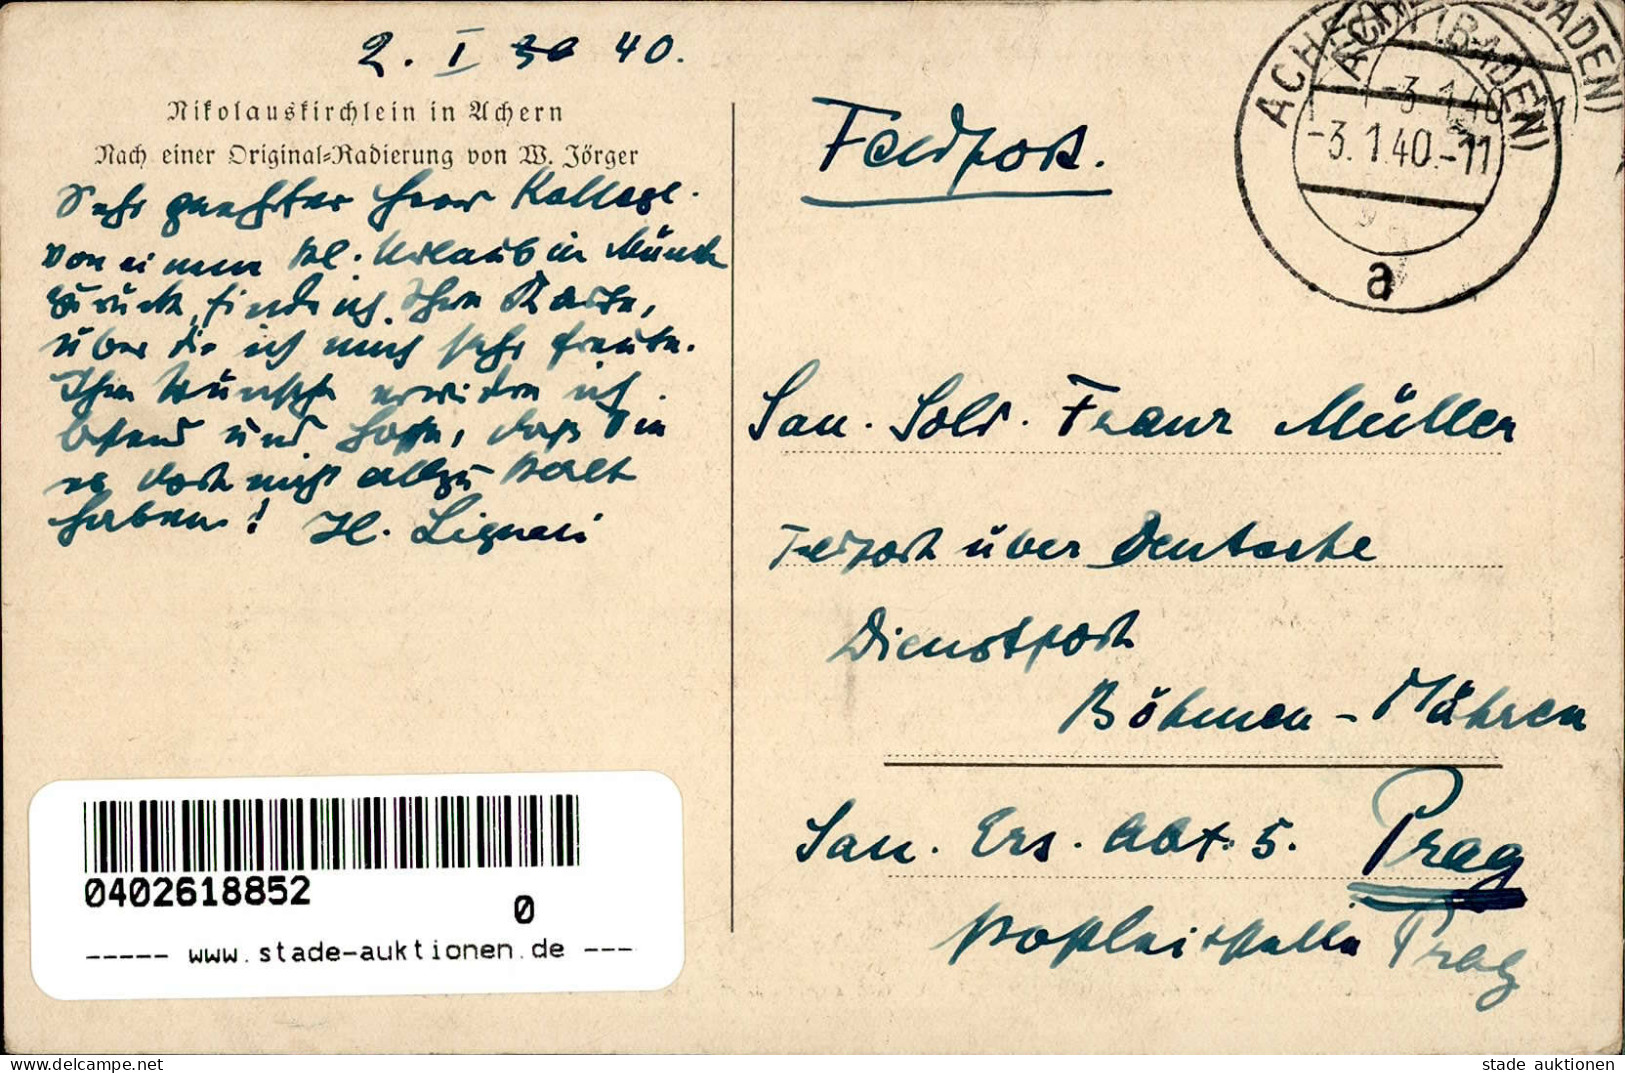 2. I 40.
Nikolauskirchlein in Achern
Nach einer Original=Radierung von W. Jörger
Sehr geehrter Herr Kollege.
Von einem kl. Urlaub in Münch
zurück, finde ich Ihre Karte,
über die ich mich sehr freute.
Ihre Wünsche erwidere ich
und hoffe, daß Sie
es dort nicht allzu kalt
haben! H.
0402618852
0
----- www.stade-auktionen.de ---
Feldpost.
ACHERN (BADEN)
-3.1.40.-11
a
ACHERN (BADEN)
-3.1.40
San. Sold. Franz Müller
Feldpost über Deutsche
Dienstpost
Böhmen - Mähren
San. Ers. Abt. 5. Prag
Postleitstelle Prag
stade auktionen